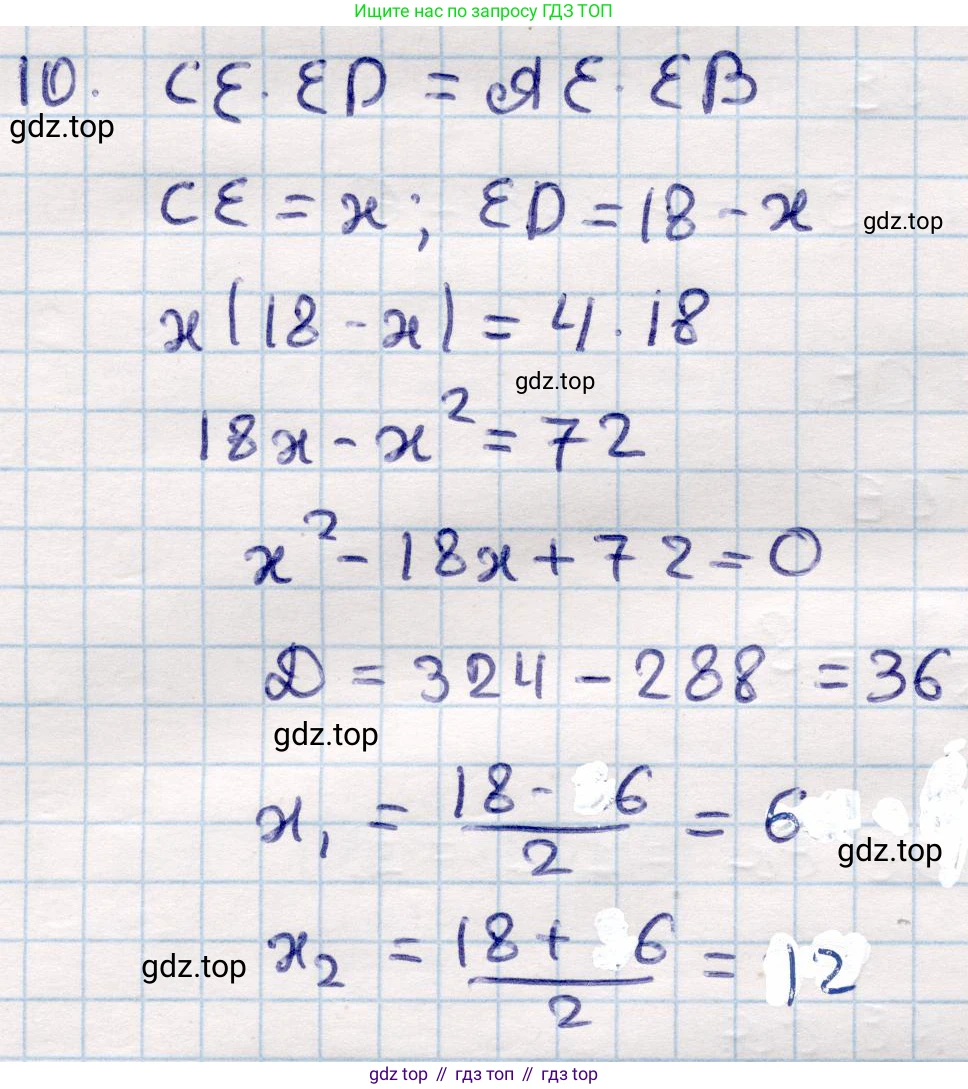 Ищите нас по запросу ГДЗ ТОП
10. CE · ED = AE · EB
gdz.top
CE = x; ED = 18 - x
gdz.top
x(18 - x) = 4 · 18
gdz.top
18x - x² = 72
x² - 18x + 72 = 0
D = 324 - 288 = 36
gdz.top
x₁ = (18 - 6)/2 = 6
gdz.top
x₂ = (18 + 6)/2 = 12
gdz.top
gdz top // гдз топ // gdz top